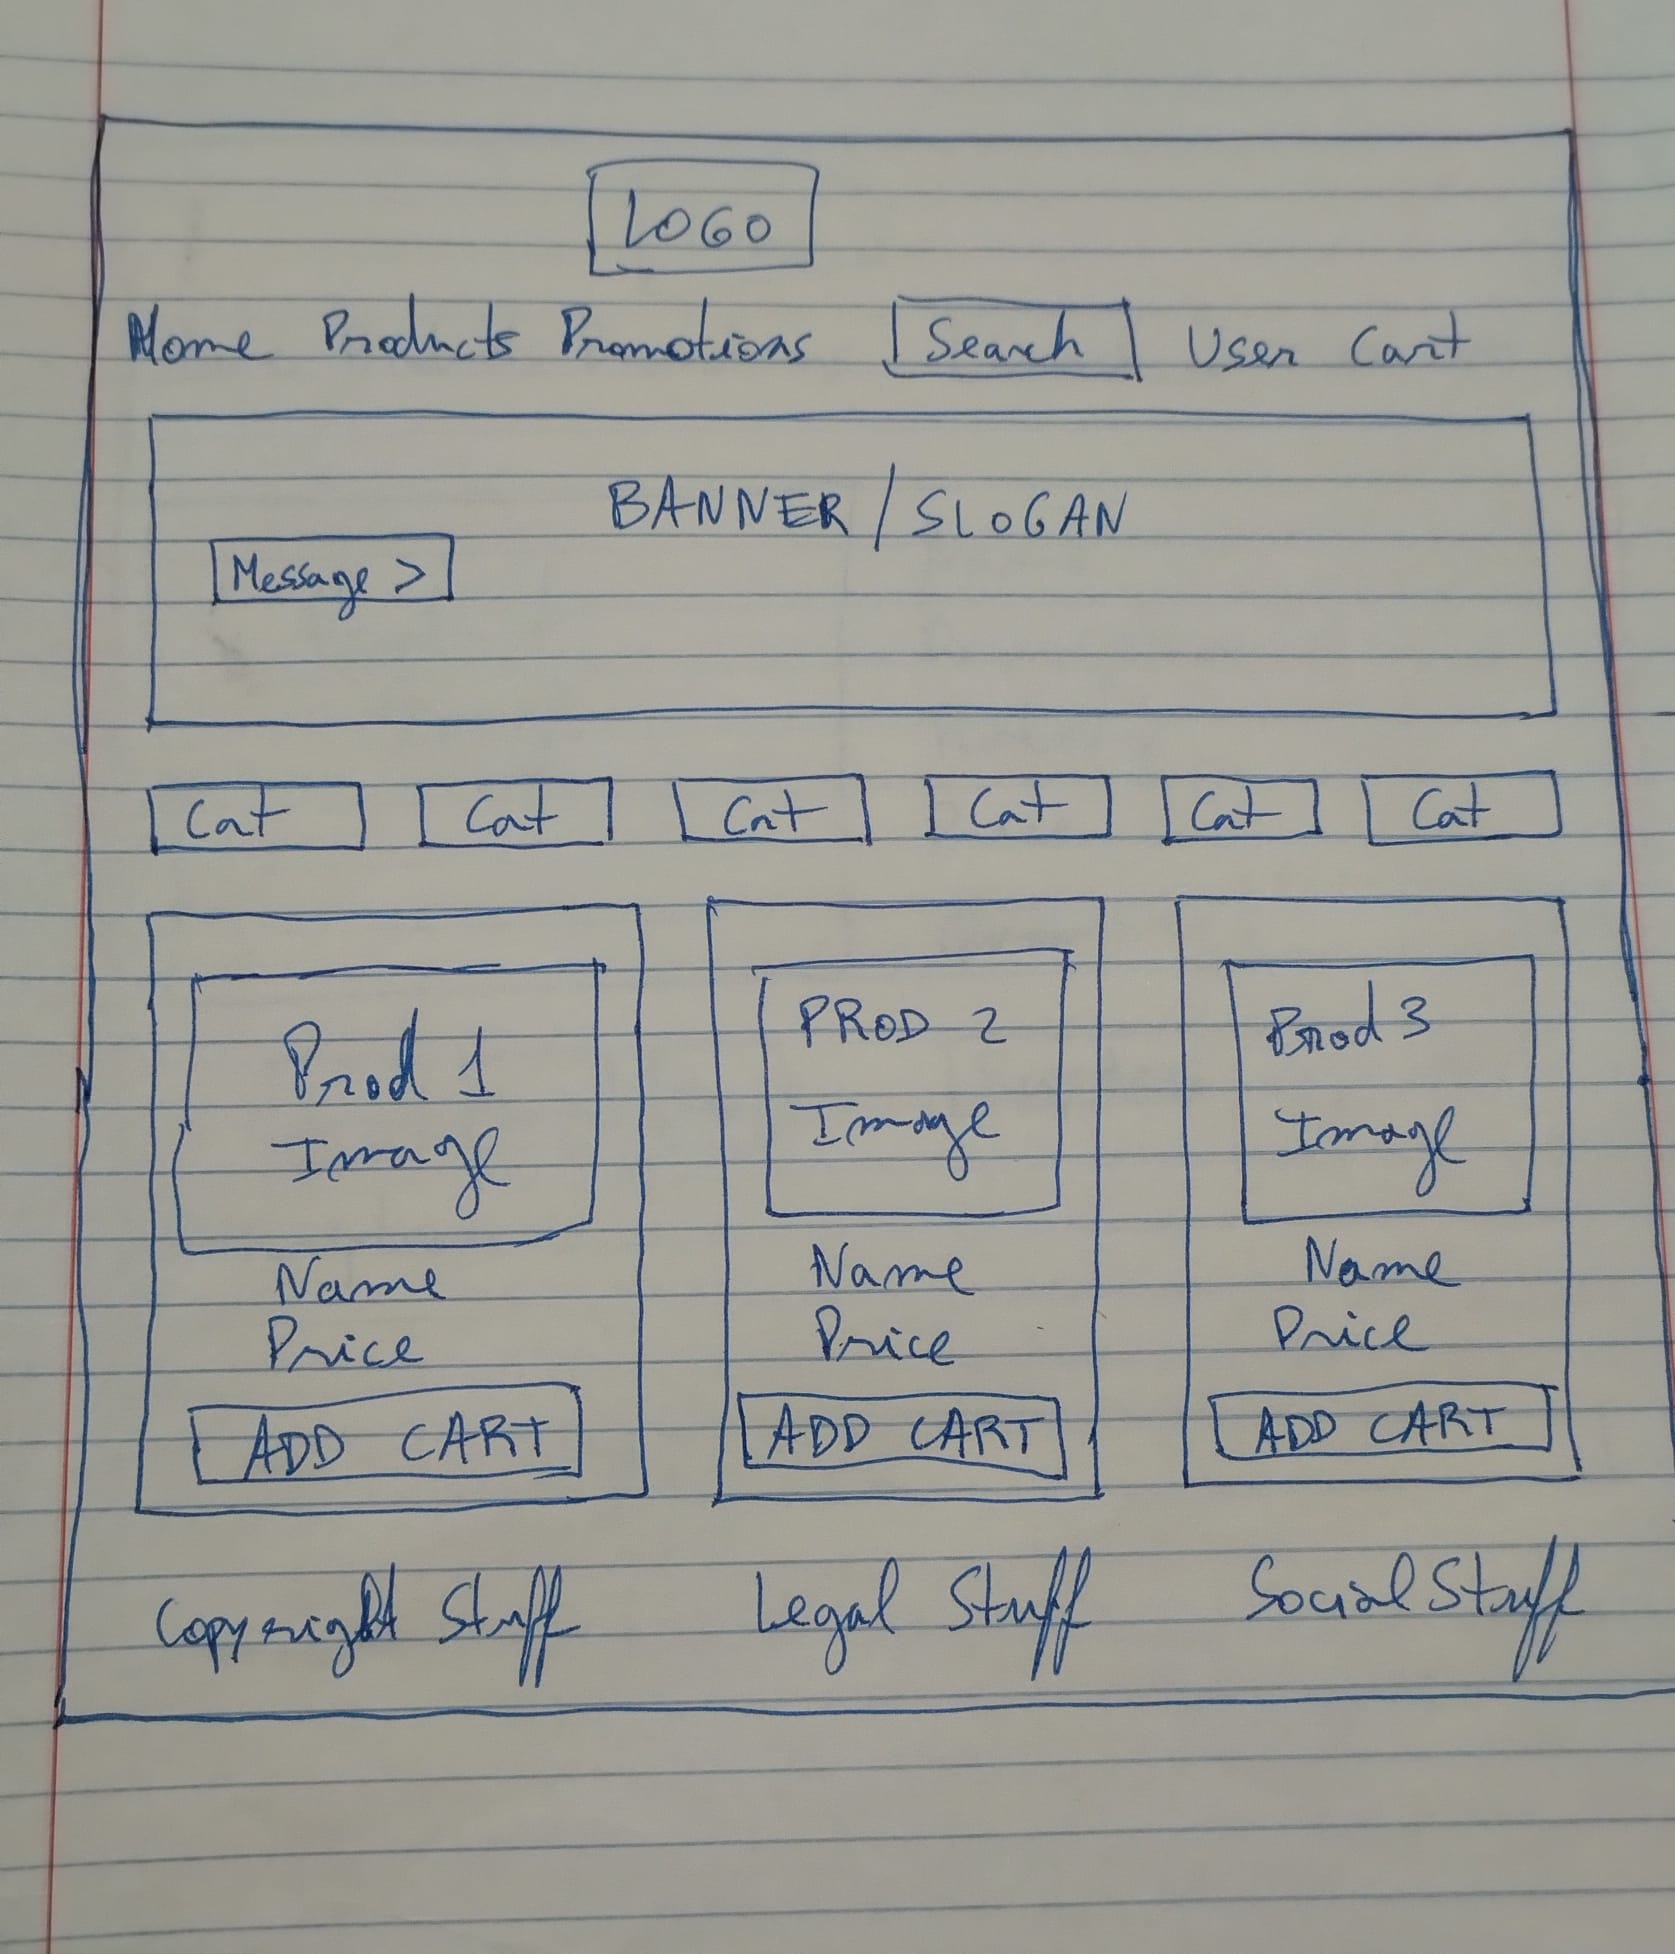 LOGO
Home Products Promotions Search User Cart
BANNER/SLOGAN
Message >
Cat Cat Cat Cat Cat Cat
Prod 1
Image
Name
Price
ADD CART
PROD 2
Image
Name
Price
ADD CART
Prod 3
Image
Name
Price
ADD CART
Copyright Stuff Legal Stuff Social Stuff